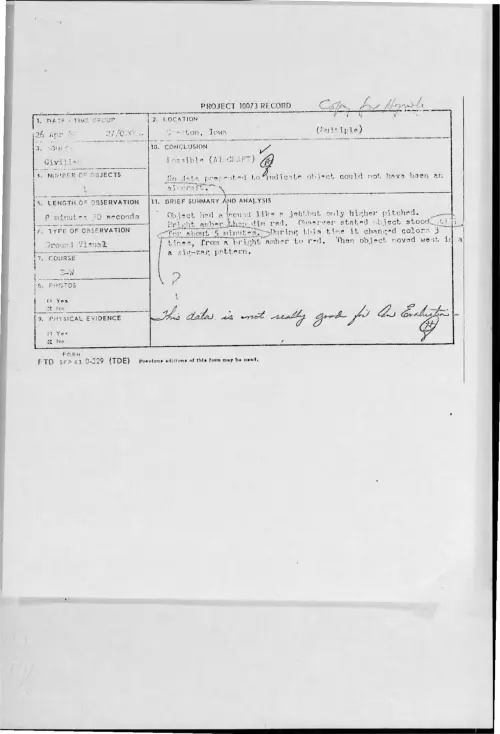 PROJECT 10073 RECORD
Copy for
1. DATE - TIME GROUP
26 Apr
2. LOCATION
Iowa (Multiple)
3. SOURCE
Civilian
10. CONCLUSION
Possible (AIRCRAFT)
No data presented to indicate object could not have been an
aircraft.
4. NUMBER OF OBJECTS
1
5. LENGTH OF OBSERVATION
8 minutes 30 seconds
11. BRIEF SUMMARY AND ANALYSIS
Object had a sound like a jet but only higher pitched.
Bright amber than dim red. Observer stated object stood still
for about 5 minutes. During this time it changed colors 3
times, from a bright amber to red. Then object moved west in a
a zig-zag pattern.
6. TYPE OF OBSERVATION
Ground Visual
7. COURSE
?
8. PHOTOS
□ Yes
☒ No
9. PHYSICAL EVIDENCE
□ Yes
☒ No
This data is not really good for An Evaluation
FORM
FTD SEP 63 0-329 (TDE) Previous editions of this form may be used.